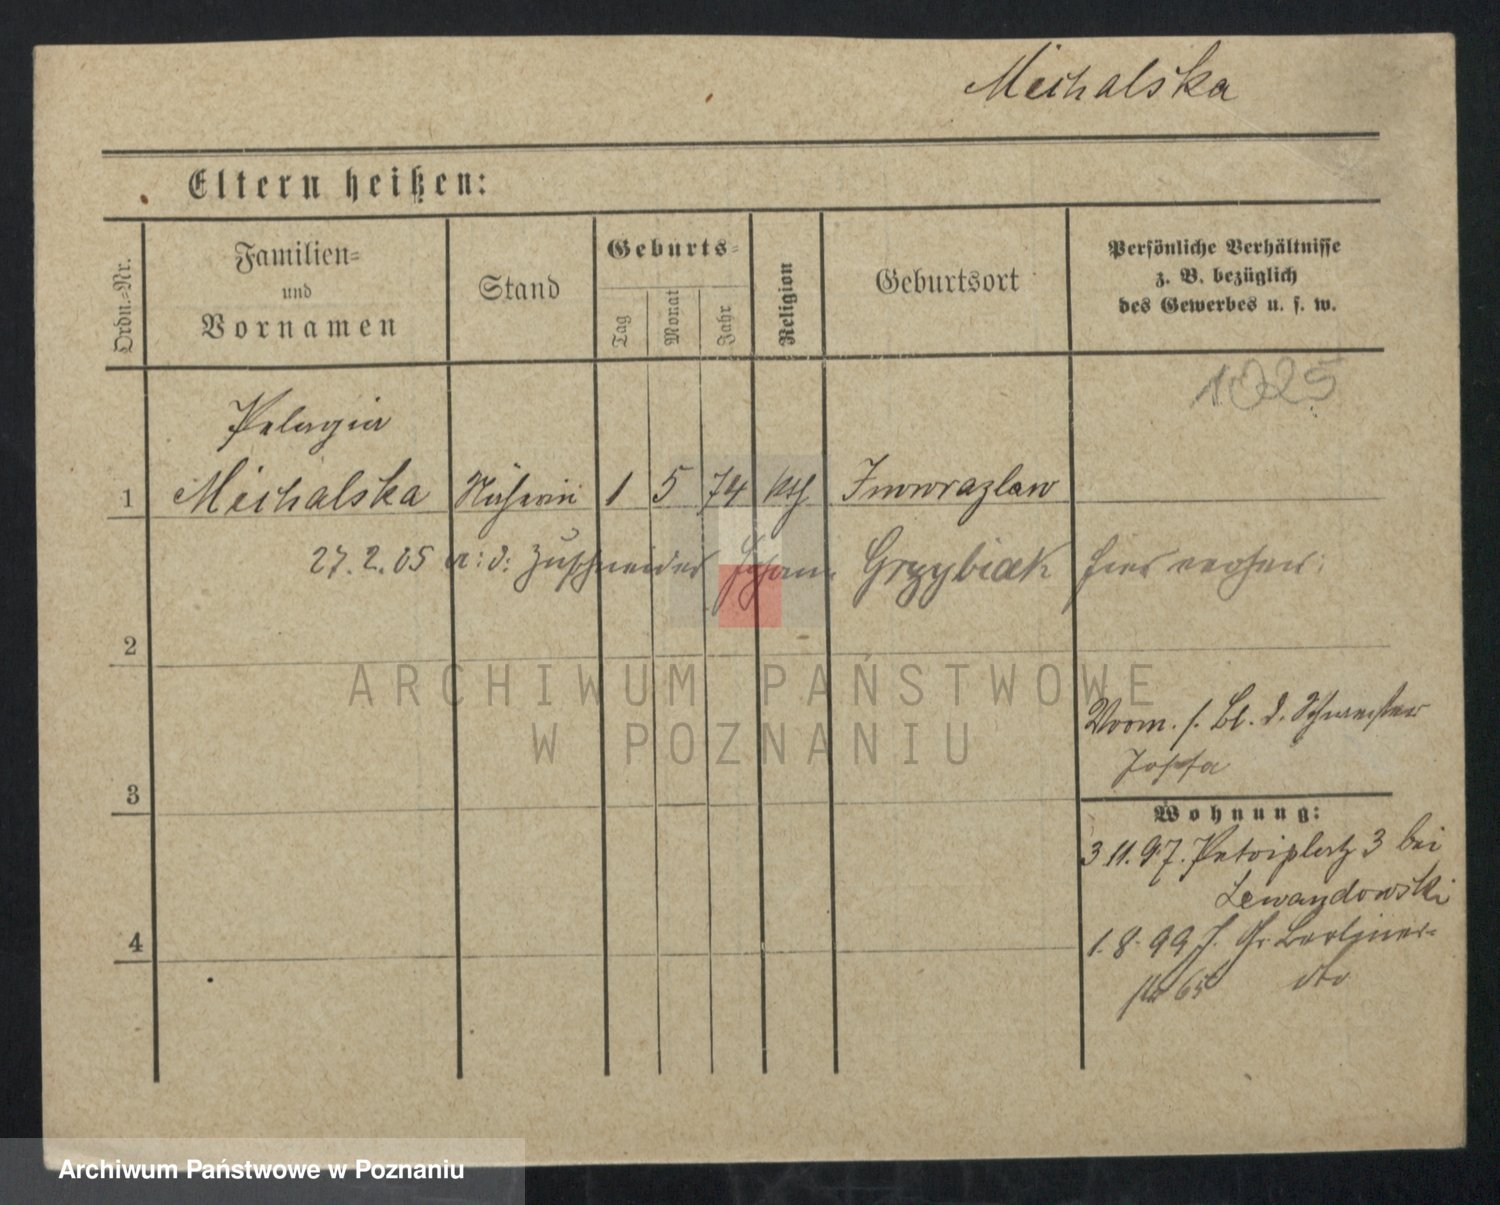 Michalska
Eltern heißen:
Ordn.=Nr.
Familien=
und
Vornamen
Stand
Geburts=
Tag
Monat
Jahr
Religion
Geburtsort
Persönliche Verhältnisse
z. B. bezüglich
des Gewerbes u. s. w.
1025
Pelagia
1 Michalska Näherin 1 5 74 kth Inowrazlaw
27.2.05 a: d: Zuschneider Johann Grzybiak hier verh
2
ARCHIWUM PAŃSTWOWE
W POZNANIU
Vorm. s. Bl. d. Schwester
Josefa
3
Wohnung:
3 11. 97. Petriplatz 3 bei
Lewandowski
4
1. 8. 99 J. Gr. Berliner-
str 65 dto
Archiwum Państwowe w Poznaniu